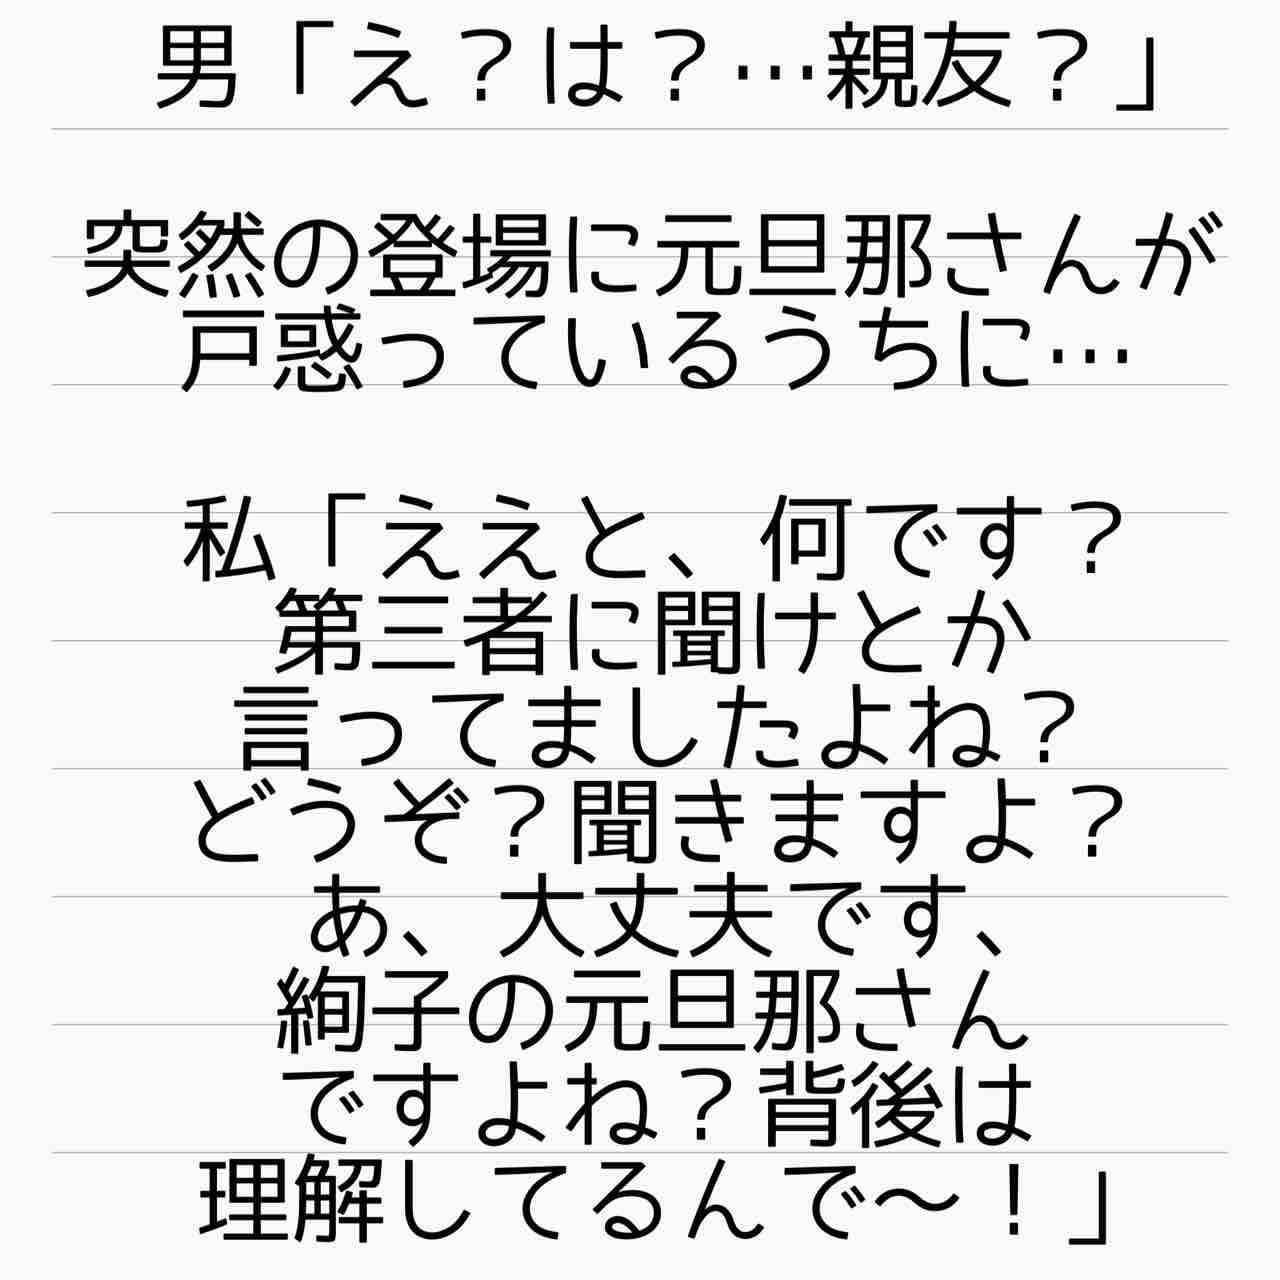 男「え？は？…親友？」
突然の登場に元旦那さんが
戸惑っているうちに…
私「ええと、何です？
第三者に聞けとか
言ってましたよね？
どうぞ？聞きますよ？
あ、大丈夫です、
絢子の元旦那さん
ですよね？背後は
理解してるんで〜！」